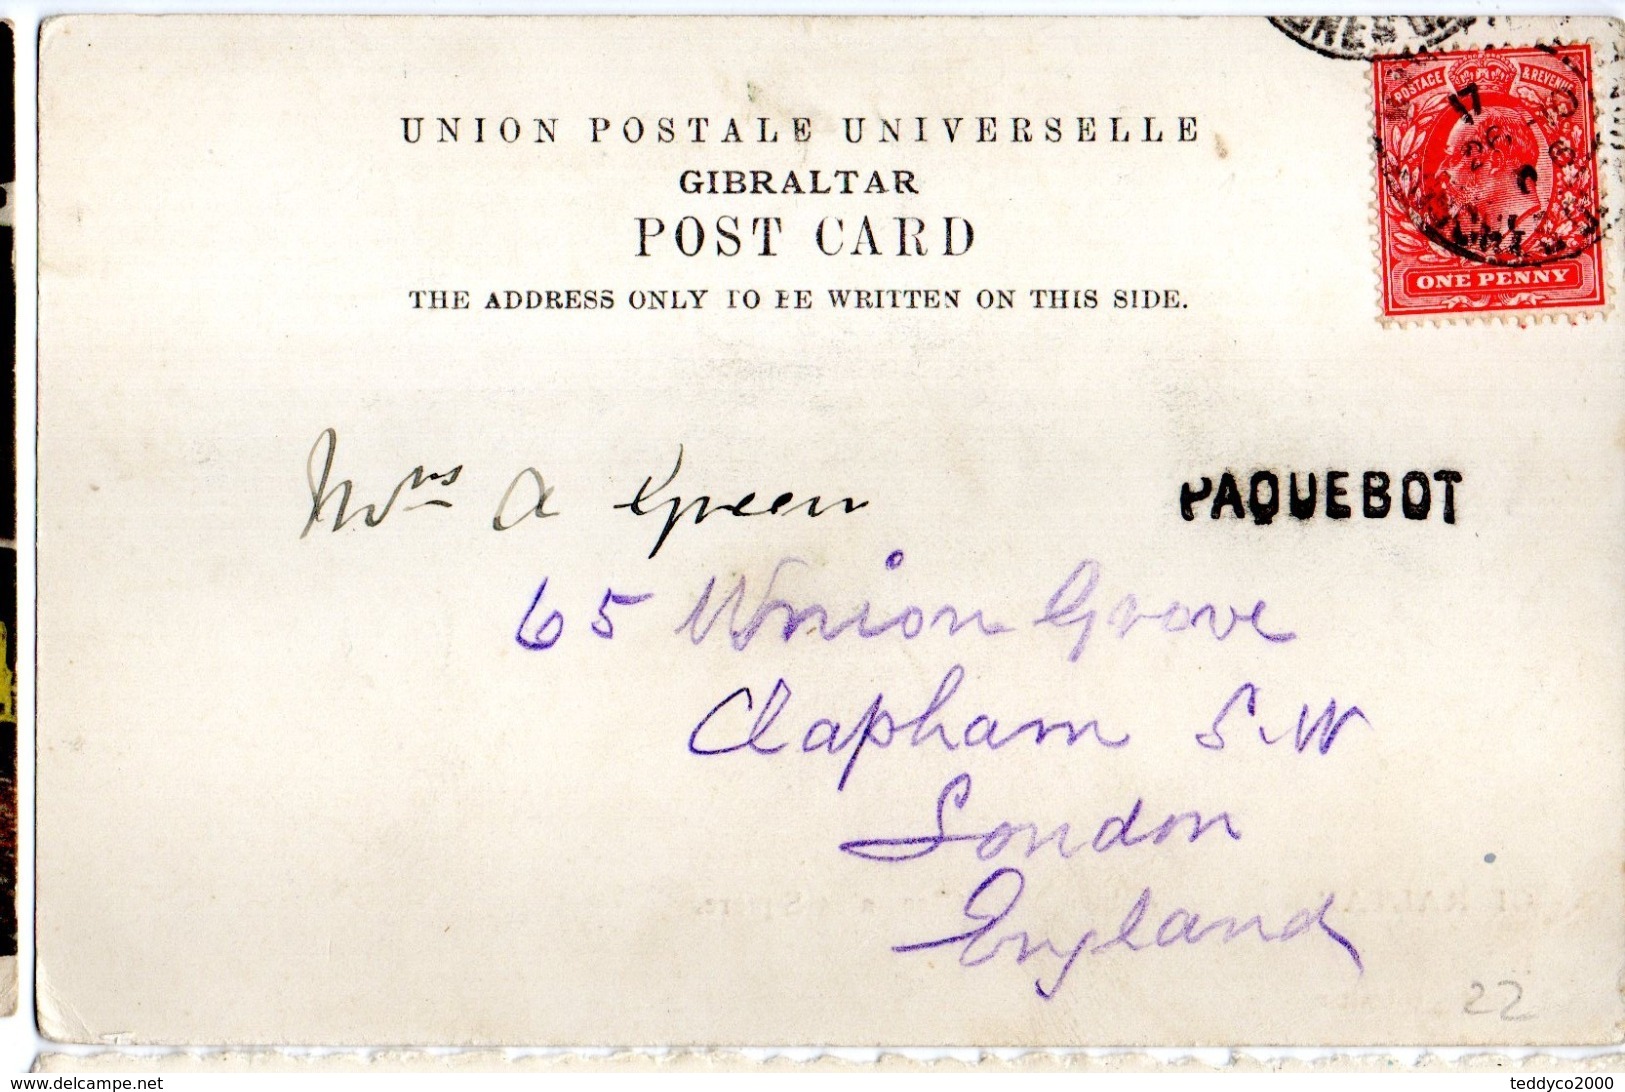 UNION POSTALE UNIVERSELLE
GIBRALTAR
POST CARD
THE ADDRESS ONLY TO BE WRITTEN ON THIS SIDE.
POSTAGE & REVENUE
17
ONE PENNY
Mrs A Green
PAQUEBOT
65 Union Grove
Clapham S.W
London
England
22
www.delcampe.net
teddyco2000